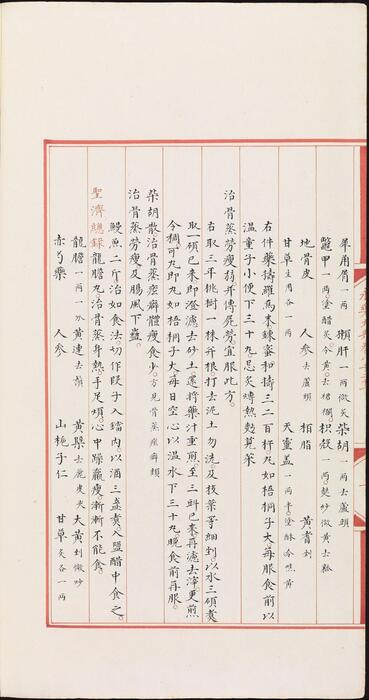 犀角屑一兩 獺肝一兩微炙 柴胡一兩去蘆頭
鼈甲一兩塗醋炙令黄去裙襴 枳殼一兩麩炒微黄去瓤
地骨皮 人參去蘆頭 栢脂 黄耆剉
甘草生用各一兩 天靈盖一兩半塗酥令焦黄
右件藥擣羅爲末錬蜜和擣三二百杵丸如梧桐子大每服食前以
温童子小便下三十丸忌炙煿熱麪莧菜
治骨蒸勞瘦弱并傳屍勞宜服此方
右取三年桃樹一株并根打去泥土勿洗及枝葉等細剉以水三碩煑
取一碩已來即澄濾去砂土還將藥汁重煎至三㪷已來再濾去滓更煎
令稠可丸即丸如梧桐子大每日空心以温水下三十丸晚食前再服
柴胡散治骨蒸痃癖體瘦食少方見骨蒸痃癖類
治骨蒸勞瘦及腸風下蟲
鰻魚二斤治如食法切作段子入鐺内以酒三盞煑入鹽醋中食之
聖濟總録龍膽丸治骨蒸身熱手足煩心中躁羸瘦漸漸不能食
龍膽一兩一分 黄連去鬚 黄蘗去麁皮炙 大黄剉微炒
赤芍藥 人參 山梔子仁 甘草炙各一兩